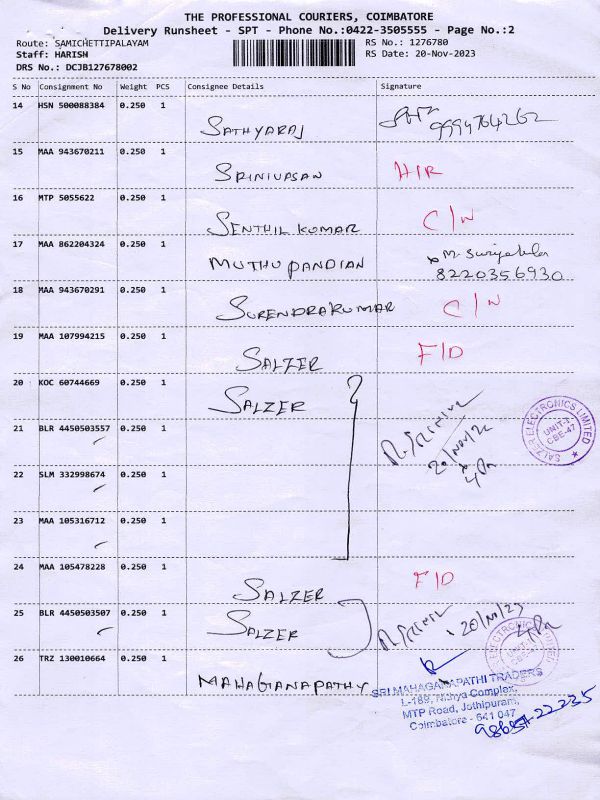 THE PROFESSIONAL COURIERS, COIMBATORE
Delivery Runsheet - SPT - Phone No.:0422-3505555 - Page No.:2
Route: SAMICHETTIPALAYAM RS No.: 1276780
Staff: HARISH RS Date: 20-Nov-2023
DRS No.: DCJB127678002
S No Consignment No Weight PCS Consignee Details Signature
14 HSN 500088384 0.250 1
SATHYARAJ 9994764262
15 MAA 943670211 0.250 1
SRINIVASAN H/R
16 MTP 5055622 0.250 1
SENTHIL KUMAR C/N
17 MAA 862204324 0.250 1
MUTHU PANDIAN M.
8220356930
18 MAA 943670291 0.250 1
SURENDRAKUMAR C/N
19 MAA 107994215 0.250 1
SALZER F/D
20 KOC 60744669 0.250 1
SALZER
21 BLR 4450503557 0.250 1
SALZER ELECTRONICS LIMITED
UNIT-I
CBE-47
22 SLM 332998674 0.250 1
23 MAA 105316712 0.250 1
24 MAA 105478228 0.250 1
SALZER F/D
25 BLR 4450503507 0.250 1
SALZER 20/Nov/23
26 TRZ 130010664 0.250 1
MAHAGANAPATHY
SRI MAHAGANAPATHI TRADERS
L-189, Complex,
MTP Road, Jothipuram,
Coimbatore - 641 047